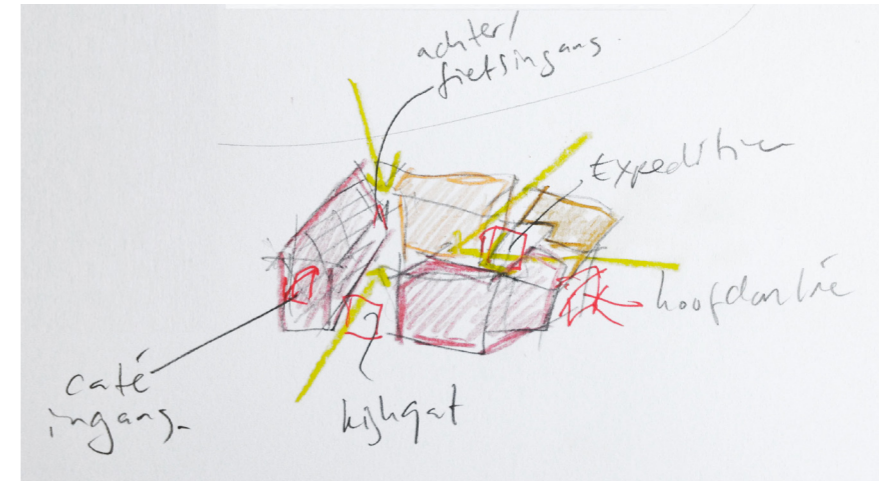 achter/
fietsingang
Expeditie
hoofdentrée
café
ingang.
kijkgat